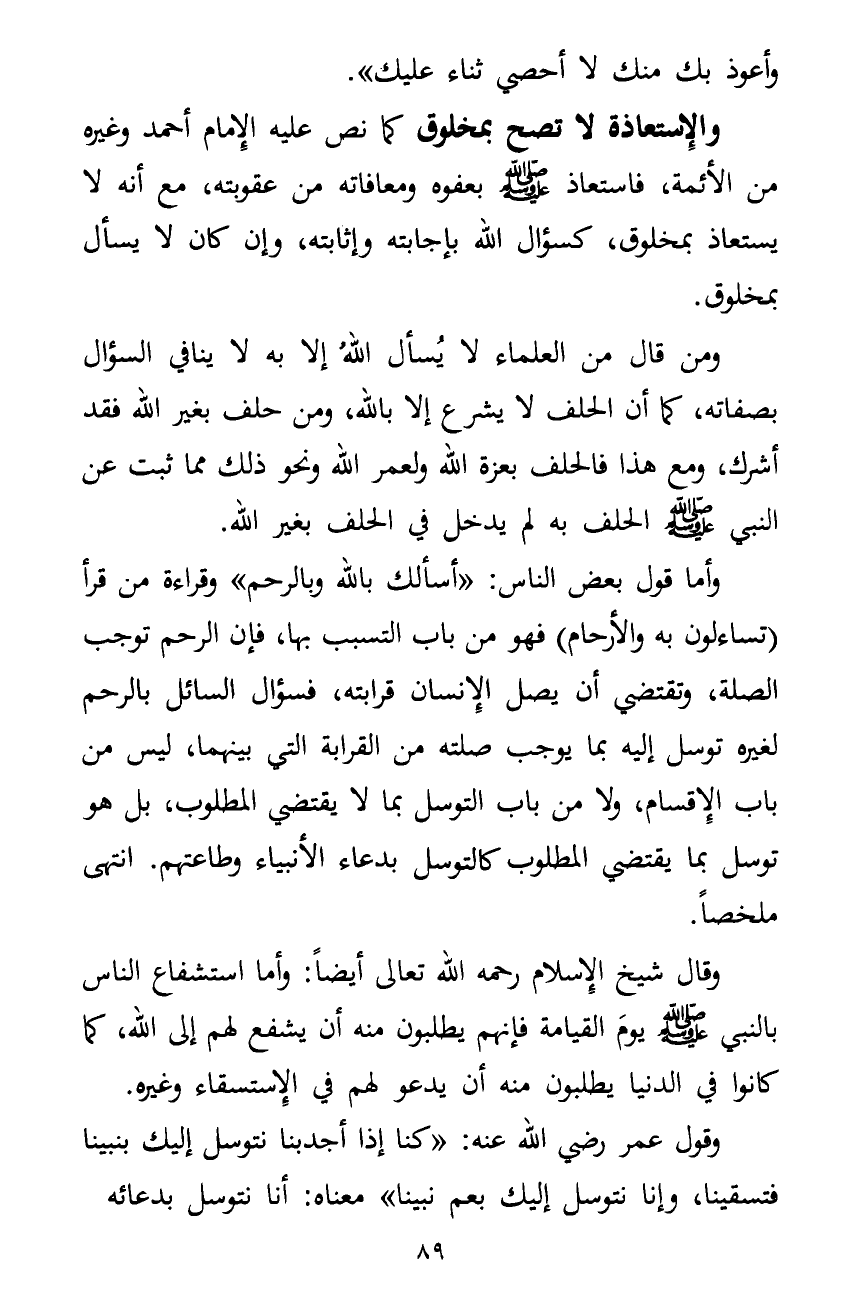 وأعوذ بك منك لا أحصي ثناء عليك».
والإستعاذة لا تصح بمخلوق كما نص عليه الإمام أحمد وغيره
من الأئمة، فاستعاذ ﷺ بعفوه ومعافاته من عقوبته، مع أنه لا
يستعاذ بمخلوق، كسؤال الله بإجابته وإثابته، وإن كان لا يسأل
بمخلوق.
ومن قال من العلماء لا يُسأل اللهُ إلا به لا ينافي السؤال
بصفاته، كما أن الحلف لا يشرع إلا بالله، ومن حلف بغير الله فقد
أشرك، ومع هذا فالحلف بعزة الله ولعمر الله ونحو ذلك مما ثبت عن
النبي ﷺ الحلف به لم يدخل في الحلف بغير الله.
وأما قول بعض الناس: «أسألك بالله وبالرحم» وقراءة من قرأ
(تساءلون به والأرحام) فهو من باب التسبب بها، فإن الرحم توجب
الصلة، وتقتضي أن يصل الإنسان قرابته، فسؤال السائل بالرحم
لغيره توسل إليه بما يوجب صلته من القرابة التي بينهما، ليس من
باب الإقسام، ولا من باب التوسل بما لا يقتضي المطلوب، بل هو
توسل بما يقتضي المطلوب كالتوسل بدعاء الأنبياء وطاعتهم. انتهى
ملخصاً.
وقال شيخ الإسلام رحمه الله تعالى أيضاً: وأما استشفاع الناس
بالنبي ﷺ يومَ القيامة فإنهم يطلبون منه أن يشفع لهم إلى الله، كما
كانوا في الدنيا يطلبون منه أن يدعو لهم في الإستسقاء وغيره.
وقول عمر رضي الله عنه: «كنا إذا أجدبنا نتوسل إليك بنبينا
فتسقينا، وإنا نتوسل إليك بعم نبينا» معناه: أنا نتوسل بدعائه
٨٩